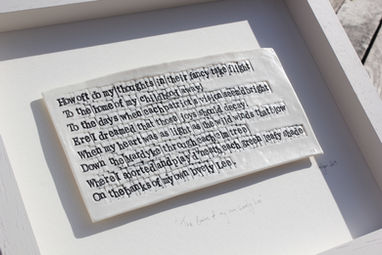 How oft do my thoughts in their fancy take flight
To the home of my childhood away,
To the days when each patriot's vision seemed bright
Ere I dreamed that those joys should decay.
When my heart was as light as the wild winds that blow
Down the Mardyke through each elm tree,
Where I sported and play'd 'neath each green leafy shade
On the banks of my own lovely Lee.
"The Banks of my own lovely Lee"